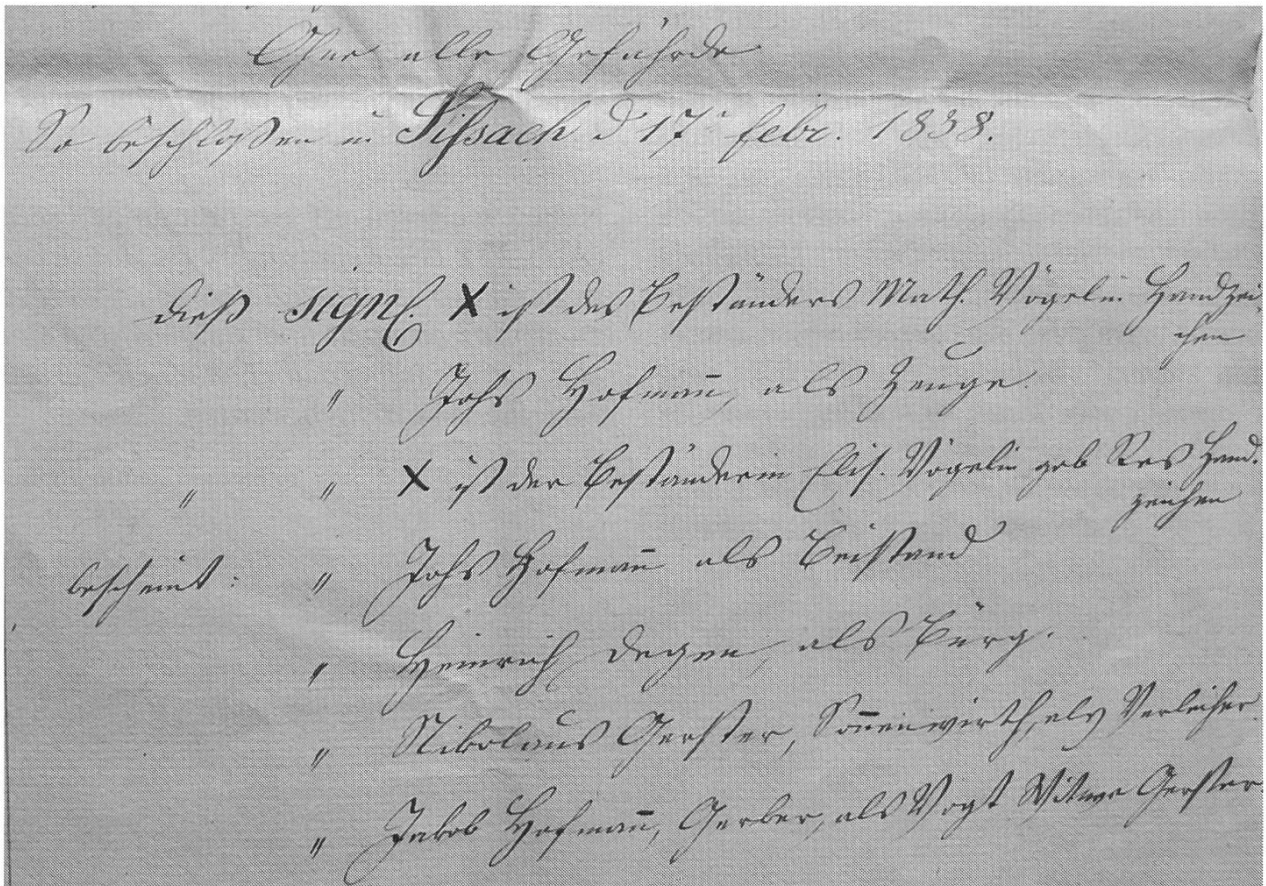 Ohne alle Gefährde
So beschloßen in Sißach d 17ᵗ febr. 1838.
dieß signl. X ist des Beständers Math. Vögelin Handzei
chen
" Johs Hofman̄, als Zeuge.
" " X ist der Beständerin Elis. Vögelin geb Hand-
zeichen
bescheint: " Johs Hofman̄ als Beistand
" Heinrich Degen, als Bürg.
" Nikolaus Gerster, Son̄enwirth, als Verleiher.
" Jakob Hofman̄, Gerber, als Vogt Witwe Gerster.